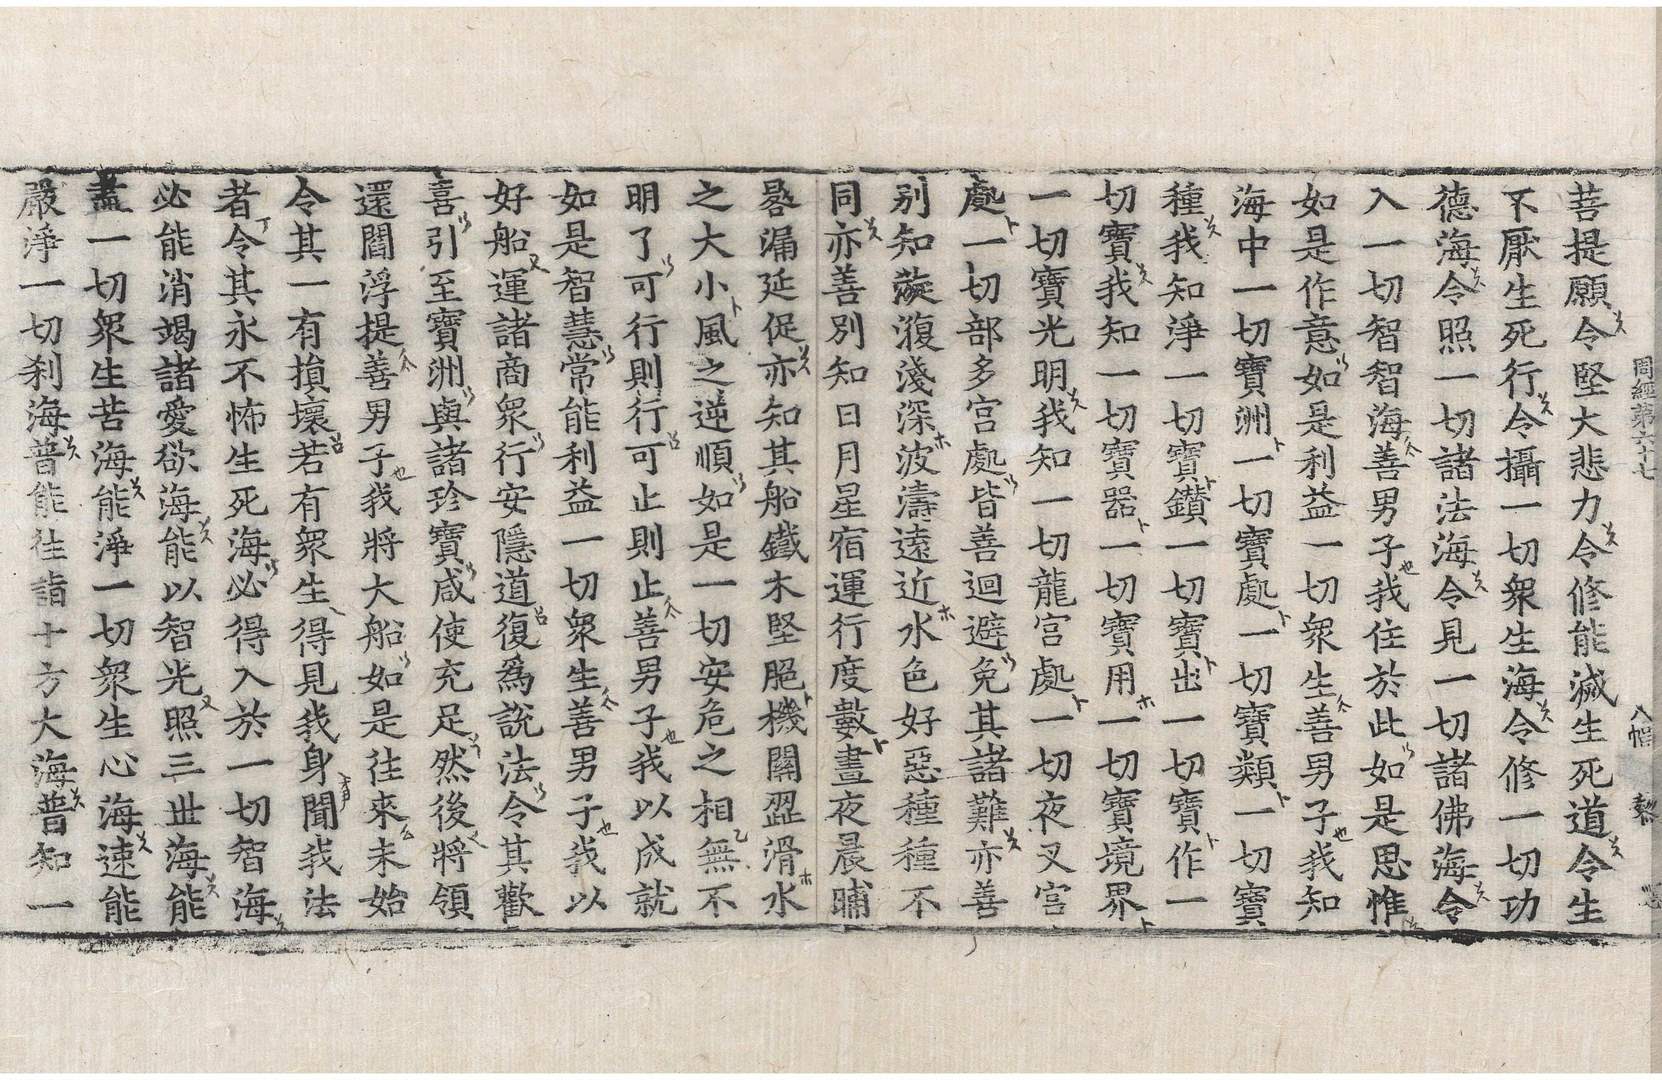 周經第六十七
菩提願令堅大悲力令修能滅生死道令生
不厭生死行令攝一切衆生海令修一切功
德海令照一切諸法海令見一切諸佛海令
入一切智智海善男子我住於此如是思惟
如是作意如是利益一切衆生善男子我知
海中一切寶洲一切寶處一切寶類一切寶
種我知淨一切寶鑽一切寶出一切寶作一
切寶我知一切寶器一切寶用一切寶境界
一切寶光明我知一切龍宮處一切夜叉宮
處一切部多宮處皆善迴避免其諸難亦善
別知漩澓淺深波濤遠近水色好惡種種不
同亦善別知日月星宿運行度數晝夜晨晡
晷漏延促亦知其船鐵木堅脆機關澀滑水
之大小風之逆順如是一切安危之相無不
明了可行則行可止則止善男子我以成就
如是智慧常能利益一切衆生善男子我以
好船運諸商衆行安隱道復爲說法令其歡
喜引至寶洲與諸珍寶咸使充足然後將領
還閻浮提善男子我將大船如是往來未始
令其一有損壞若有衆生得見我身聞我法
者令其永不怖生死海必得入於一切智海
必能消竭諸愛欲海能以智光照三世海能
盡一切衆生苦海能淨一切衆生心海速能
嚴淨一切刹海普能往詣十方大海普知一